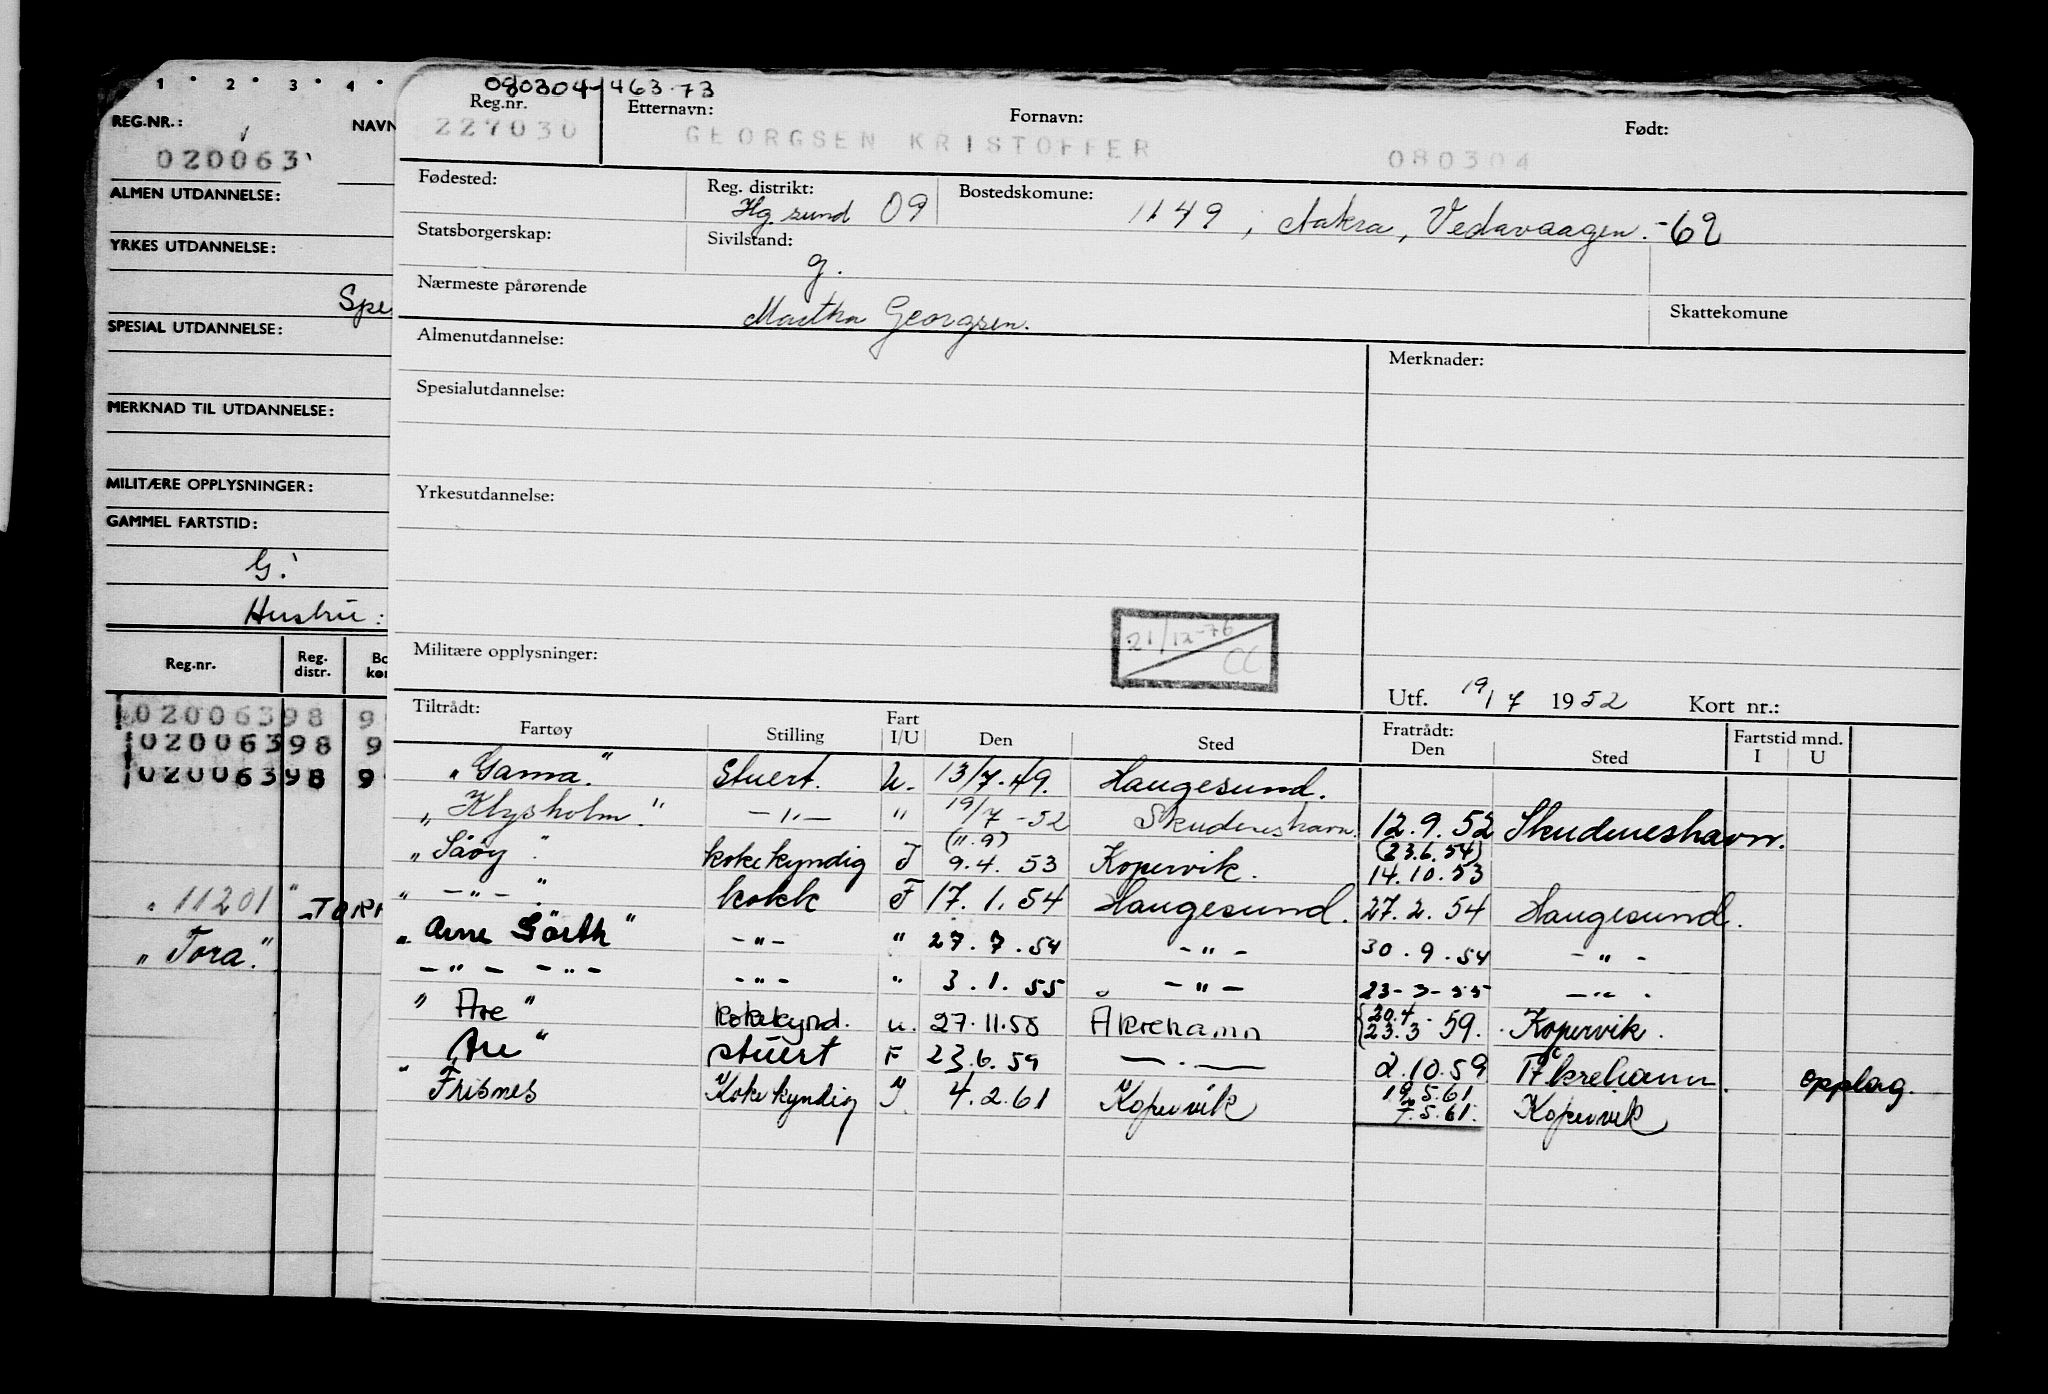 1 2 3 4
REG.NR.: NAVN
020063
ALMEN UTDANNELSE:
YRKES UTDANNELSE:
Spe
SPESIAL UTDANNELSE:
MERKNAD TIL UTDANNELSE:
MILITÆRE OPPLYSNINGER:
GAMMEL FARTSTID:
G.
Hustru:
Reg.nr. Reg. distr. Bo kom
020063 98 9
020063 98 9
020063 98 9
" 11201 "
"Tora."
080304-463.73
Reg.nr. Etternavn: Fornavn: Født:
227030 GEORGSEN KRISTOFFER 080304
Fødested: Reg. distrikt: Bostedskomune:
Hg.sund 09 1149, Aakra, Vedavaagen. -62
Statsborgerskap: Sivilstand:
g.
Nærmeste pårørende Skattekomune
Martha Georgsen.
Almenutdannelse: Merknader:
Spesialutdannelse:
Yrkesutdannelse:
21/12-76
CC
Militære opplysninger:
Utf. 19/7 1952 Kort nr.:
Tiltrådt: Fratrådt: Fartstid mnd.
Fartøy Stilling Fart I/U Den Sted Den Sted I U
"Gama." Stuert. U. 13/7.49. Haugesund.
"Klysholm." -"- " 19/7-52 Skudeneshavn. 12.9.52 Skudeneshavn.
(11.9) (23.6.54)
"Säöy". kokekyndig I 9.4.53 Kopervik. 14.10.53
" -"- ". kokk F 17.1.54 Haugesund. 27.2.54 Haugesund.
"Arne Görth" -"- " 27.7.54 -"- 30.9.54 -"-
-"- -"- -"- " 3.1.55 " -"- 23-3-55 -"-
"Are" kokekynd. u. 27.11.58 Akrehamn 20.4. 23.3-59. Kopervik.
"Are" stuert F 23.6.59 —.— 2.10.59 Åkrehamn. opplag.
" Frisnes Kokekyndig I. 4.2.61 Kopervik 19.5.61 7.5.61. Kopervik